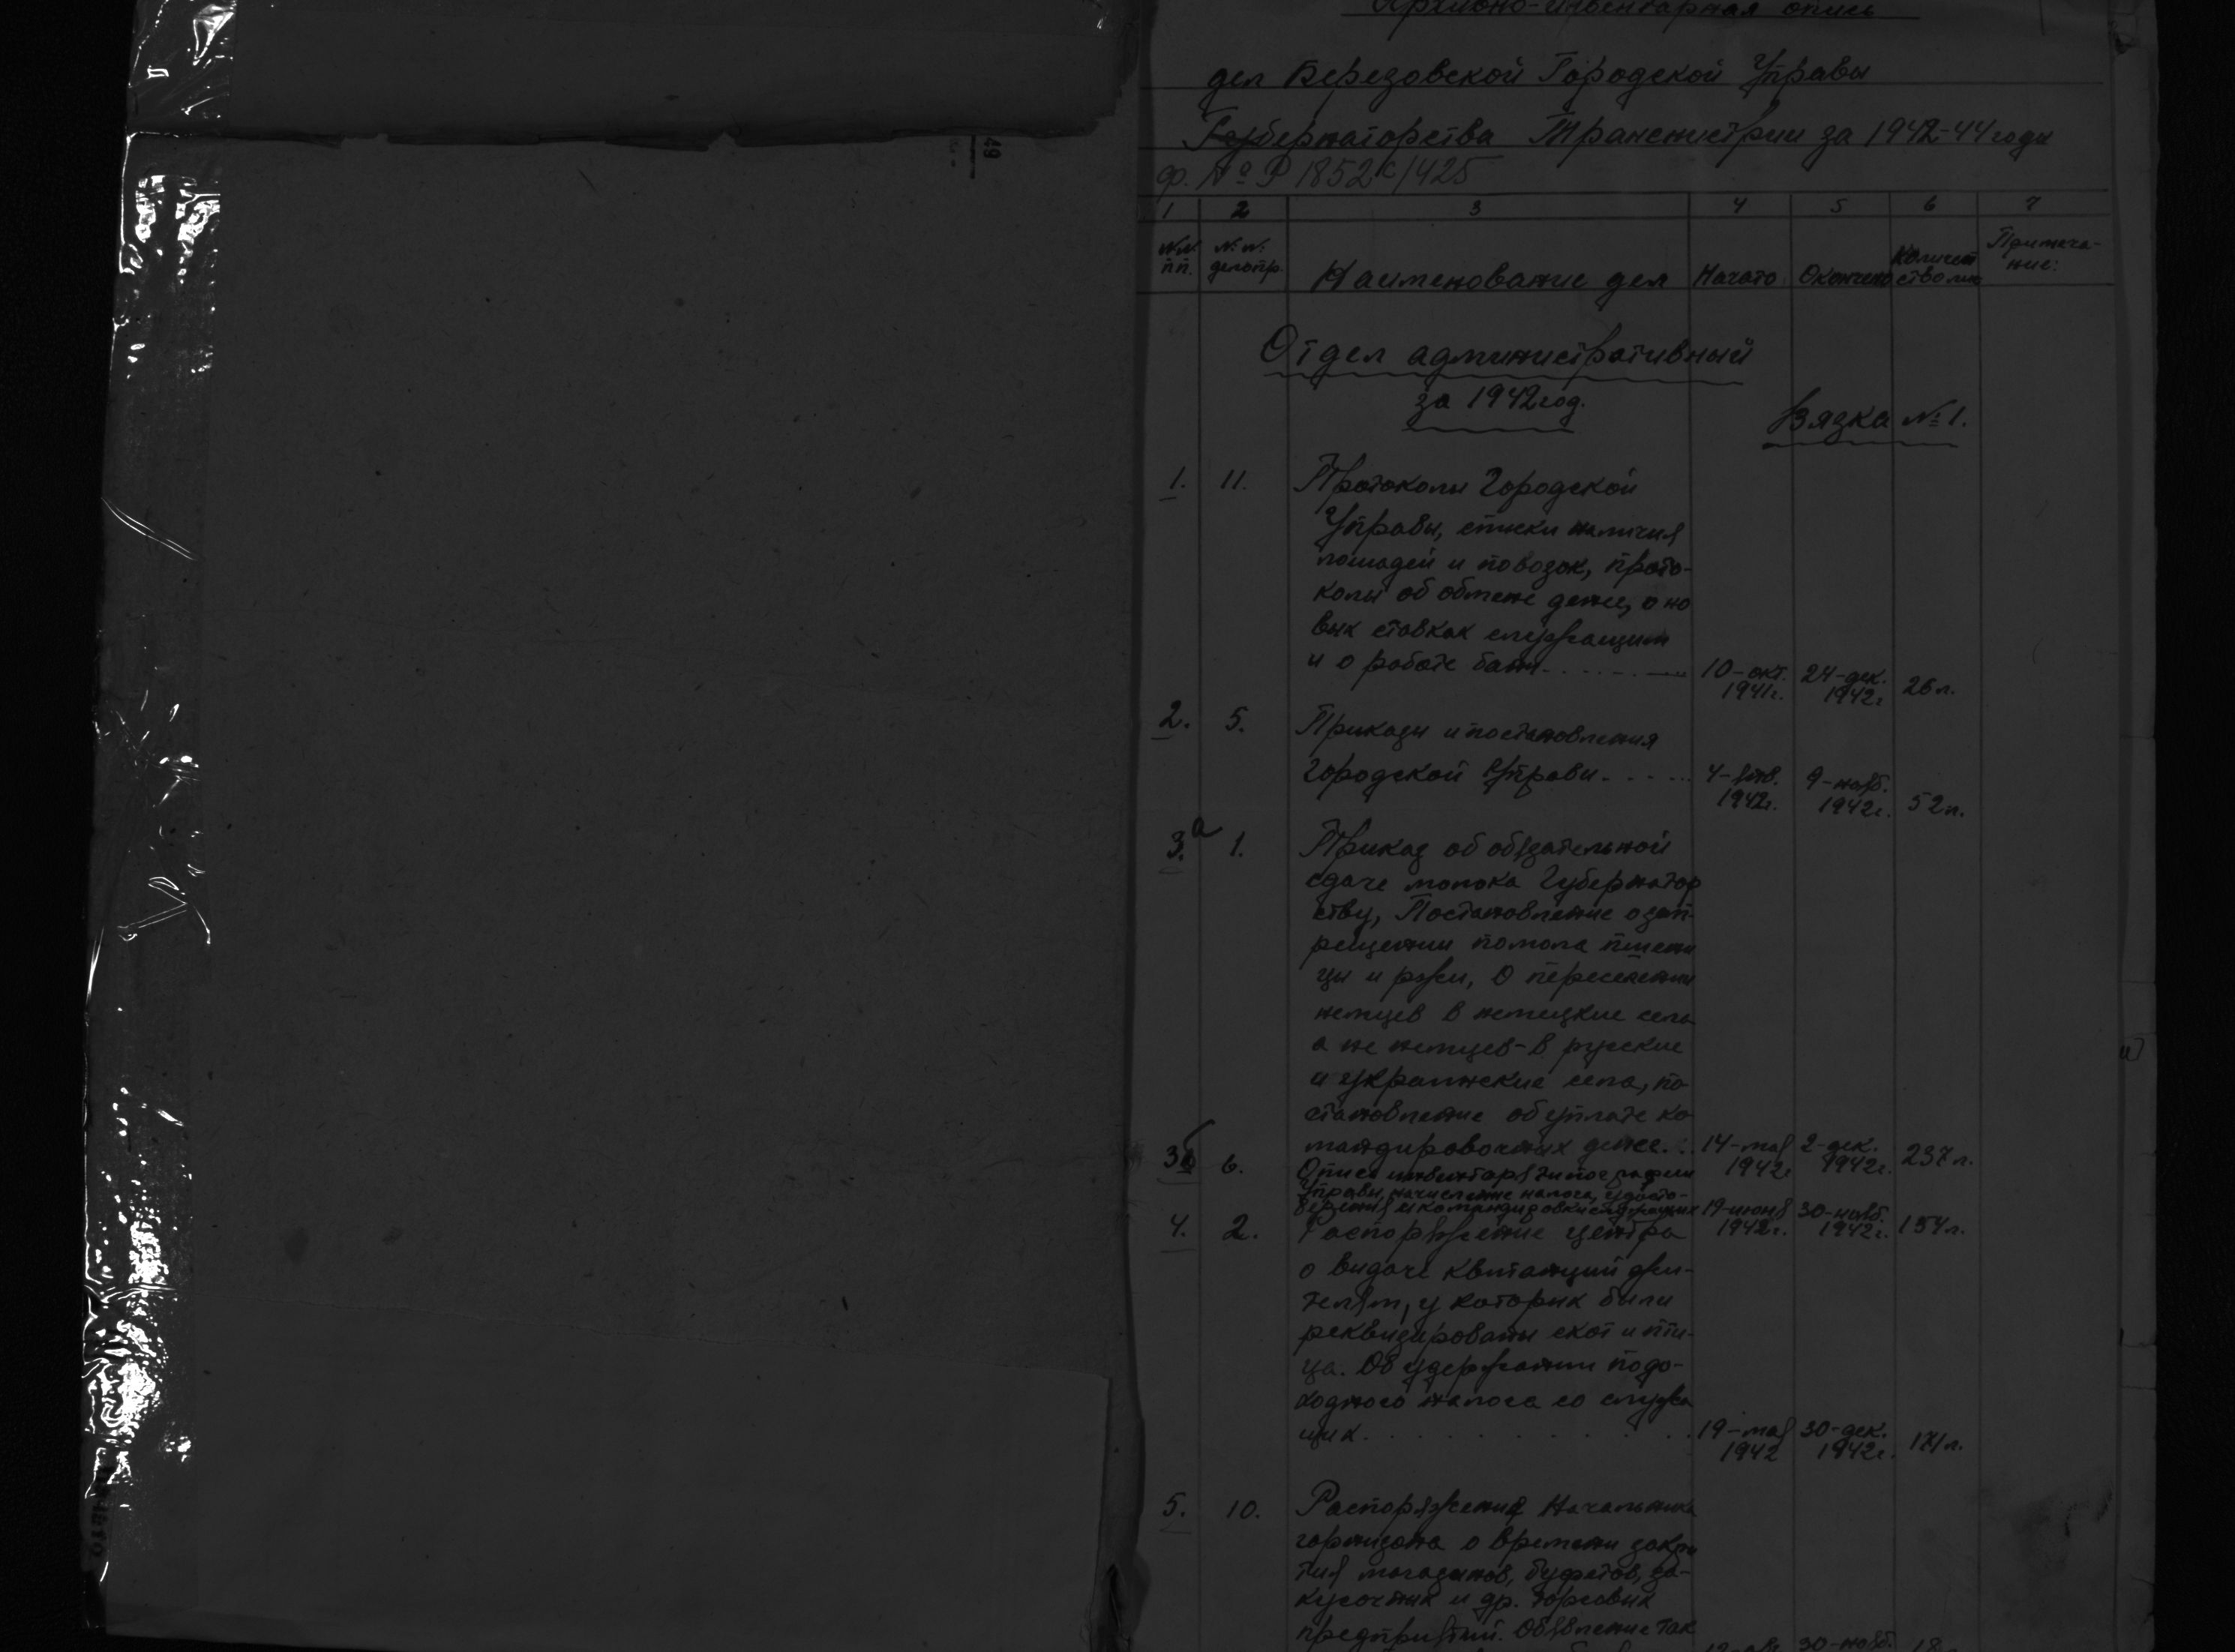 Архивно-инвентарная опись
дел Березовской Городской Управы
Губернаторства Транснистрии за 1942-44 годы
ф. № Р 1852с/425
1 2 3 4 5 6 7
№№ пп. №№ делопр. Наименование дел Начато Окончено Количество лис Примеча-
ние:
Отдел административный
за 1942 год.
Вязка № 1.
1. 11. Протоколы Городской
Управы, списки наличия
лошадей и повозок, прото-
колы об обмене денег, о но
вых ставках служащим
и о работе бани 10-окт. 1941г. 24-дек. 1942г. 26 л.
2. 5. Приказы и постановления
городской Управы 4-янв. 1942г. 9-нояб. 1942г. 52 л.
3.а 1. Приказ об обязательной
сдаче молока Губернатор
ству, Постановление о зап-
рещении помола пшени
цы и ржи, О переселении
немцев в немецкие села
а не немцев-в русские
и украинские села, по
становление об уплате ко
мандировочных денег. 14-мая 1942г 2-дек. 1942г. 237 л.
3б 6. Опись инвентаря типографии
Управы, начисление налога, удосто-
верения и командировки служащих 19-июня 1942г. 30-нояб. 1942г. 154 л.
4. 2. Распоряжение центра
о выдаче квитанций жи-
телям, у которых были
реквизированы скот и пти-
ца. Об удержании подо-
ходного налога со служа
щих 19-мая 1942 30-дек. 1942г. 171 л.
5. 10. Распоряжения Начальника
гарнизона о времени закры
тия магазинов, буфетов, за-
кусочных и др. торговых
предприятий. Объявление так
30-нояб.
49